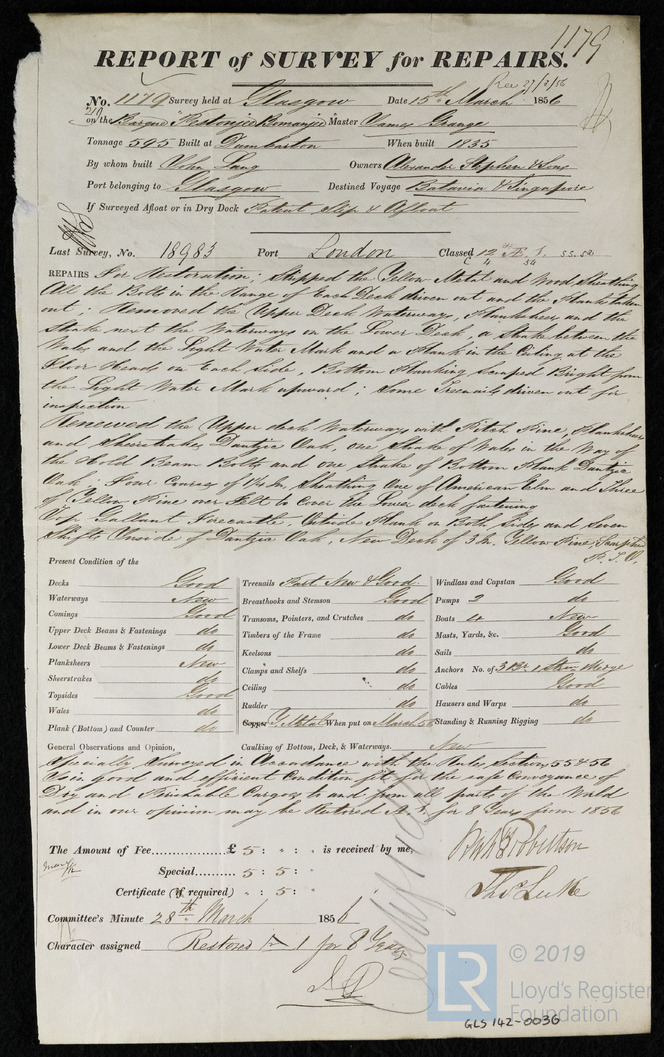 1179
REPORT of SURVEY for REPAIRS.
Rec 27/3/56
No. 1179 Survey held at Glasgow Date 15th March 1856
on the Barque "Pestonjee Bomanjee" Master James Grange
Tonnage 595 Built at Dumbarton When built 1835
By whom built John Lang Owners Alexander Stephen & Sons
Port belonging to Glasgow Destined Voyage Batavia & Singapore
If Surveyed Afloat or in Dry Dock Patent Slip & Afloat
Last Survey, No. 18983 Port London Classed 12
REPAIRS For Restoration; Stripped the Yellow Metal and Wood Sheathing
All the Bolts in the Range of Each Deck driven out and the Planks taken
out; Removed the Upper Deck Waterways, Plansheers and the
Strake next the Waterways on the Lower Deck, a Strake between the
Wales and the Light Water Mark and a Plank in the Ceiling at the
Floor Heads on Each Side, Bottom Planking Scraped Bright from
the Light Water Mark upward; Some Treenails driven out for
inspection
Renewed the Upper deck Waterways with Pitch Pine, Plansheers
and Sheerstrakes Dantzic Oak, one Strake of Wales in the Way of
the Hold Beam Bolts and one Strake of Bottom Plank Dantzic
Oak, Four Courses of 1¼ In. Sheathing One of American Elm and Three
of Yellow Pine over Felt to Cover the Lower deck fastening
Top Gallant Forecastle, Outside Plank on Both Sides and Seven
Shifts Inside of Dantzic Oak, New Deck of 3 In. Yellow Pine,
P.T.O.
Present Condition of the
Decks Good
Waterways New
Comings Good
Upper Deck Beams & Fastenings do
Lower Deck Beams & Fastenings do
Planksheers New
Sheerstrakes do
Topsides Good
Wales do
Plank (Bottom) and Counter do
Treenails Part New & Good
Breasthooks and Stemson Good
Transoms, Pointers, and Crutches do
Timbers of the Frame do
Keelsons do
Clamps and Shelfs do
Ceiling do
Rudder do
Copper Y. Metal When put on March 56
Caulking of Bottom, Deck, & Waterways. New
Windlass and Capstan Good
Pumps 2 do
Boats New
Masts, Yards, &c. Good
Sails do
Anchors No. of 3 Br. 1 Stream Kedge
Cables Good
Hausers and Warps do
Standing & Running Rigging do
General Observations and Opinion,
Specially Surveyed in Accordance with the Rules, Section 55 & 56
Is in good and efficient Condition fit for the safe Conveyance of
Dry and Perishable Cargoes to and from all parts of the World
and in our opinion may be Restored A.1. for 8 Years from 1856
The Amount of Fee £ 5 : " : " is received by me,
Special 5 : 5 : "
Certificate (if required) " : 5 : "
Robertson
Thos Luke
Committee's Minute 28th March 1856
Character assigned Restored A 1 for 8 Years
LR
© 2019
Lloyd's Register
Foundation
GLS 142-0036